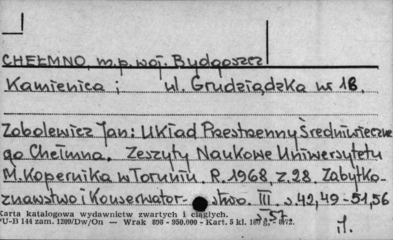 CHEŁMNO, m.p. woj. Bydgoszcz
Kamienica ; ul. Grudziądzka nr 18.
Zobolewicz Jan: Układ Przestrzenny Średniowiecznego
go Chełmna. Zeszyty Naukowe Uniwersytetu
M. Kopernika w Toruniu. R. 1968, z. 28. Zabytko-
znawstwo i Konserwatorstwo. III. s. 42, 49-51, 56
57
Karta katalogowa wydawnictw zwartych i ciągłych.
PU-B 144 zam. 1209/Dw/On — Wrak 896 - 950.000 - Kart. 5 kl.